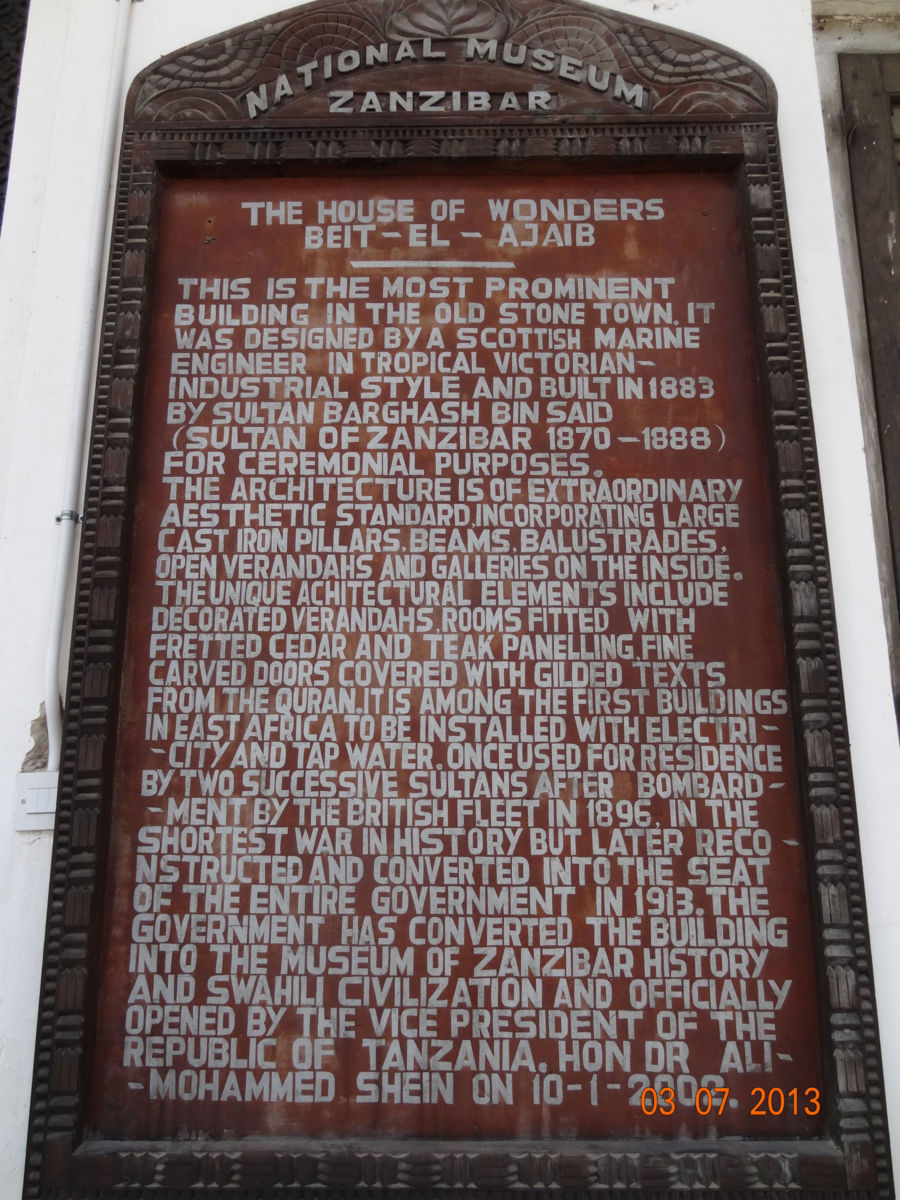 NATIONAL MUSEUM
ZANZIBAR
THE HOUSE OF WONDERS
BEIT-EL-AJAIB
THIS IS THE MOST PROMINENT
BUILDING IN THE OLD STONE TOWN. IT
WAS DESIGNED BY A SCOTTISH MARINE
ENGINEER IN TROPICAL VICTORIAN-
INDUSTRIAL STYLE AND BUILT IN 1883
BY SULTAN BARGHASH BIN SAID
(SULTAN OF ZANZIBAR 1870-1888)
FOR CEREMONIAL PURPOSES.
THE ARCHITECTURE IS OF EXTRAORDINARY
AESTHETIC STANDARD, INCORPORATING LARGE
CAST IRON PILLARS, BEAMS, BALUSTRADES,
OPEN VERANDAHS AND GALLERIES ON THE INSIDE.
THE UNIQUE ACHITECTURAL ELEMENTS INCLUDE
DECORATED VERANDAHS, ROOMS FITTED WITH
FRETTED CEDAR AND TEAK PANELLING, FINE
CARVED DOORS COVERED WITH GILDED TEXTS
FROM THE QURAN. IT IS AMONG THE FIRST BUILDINGS
IN EAST AFRICA TO BE INSTALLED WITH ELECTRI-
-CITY AND TAP WATER. ONCE USED FOR RESIDENCE
BY TWO SUCCESSIVE SULTANS AFTER BOMBARD-
-MENT BY THE BRITISH FLEET IN 1896, IN THE
SHORTEST WAR IN HISTORY BUT LATER RECO-
NSTRUCTED AND CONVERTED INTO THE SEAT
OF THE ENTIRE GOVERNMENT IN 1913. THE
GOVERNMENT HAS CONVERTED THE BUILDING
INTO THE MUSEUM OF ZANZIBAR HISTORY
AND SWAHILI CIVILIZATION AND OFFICIALLY
OPENED BY THE VICE PRESIDENT OF THE
REPUBLIC OF TANZANIA. HON DR ALI-
-MOHAMMED SHEIN ON 10-1-
03 07 2013